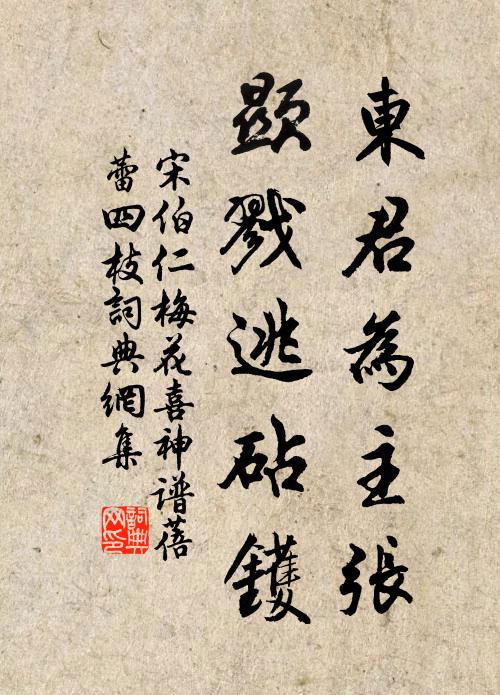 東君為主張
顯戮逃砧鑊
宋伯仁梅花喜神譜蓓
蕾四枝詞典網集
詞典网印